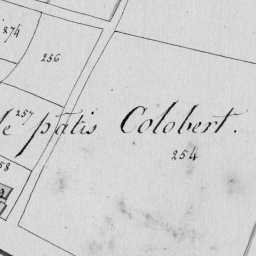 274
256
257
le patis Colobert.
254
58